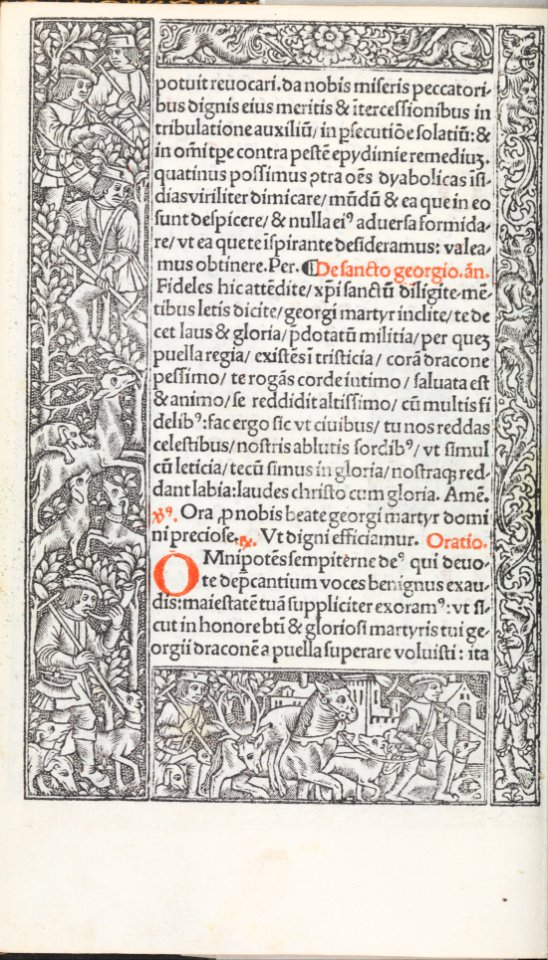 potuit reuocari. da nobis miseris peccatori-
bus dignis eius meritis & ītercessionibus in
tribulatione auxiliū/ in ꝑsecutiōe solatiū: &
in om̄i tꝑe contra pestē epydimie remediuꝫ.
quatinus possimus ꝯtra oēs dyabolicas īsi-
dias viriliter dimicare/ mūdū & ea que in eo
sunt despicere/ & nulla eiꝰ aduersa formida-
re/ vt ea que te īspirante desideramus: valea-
mus obtinere. Per. ¶ De sancto georgio. ān.
Fideles hic attēdite/ xp̄i sanctū diligite mē-
tibus letis dicite/ georgi martyr inclite/ te de
cet laus & gloria/ p̄dotatū militia/ per queꝫ
puella regia/ existēs ī tristicia/ corā dracone
pessimo/ te rogās corde intimo/ saluata est
& animo/ se reddidit altissimo/ cū multis fi
delibꝰ: fac ergo sic vt ciuibus/ tu nos reddas
celestibus/ nostris ablutis sordibꝰ/ vt simul
cū leticia/ tecū simus in gloria/ nostraqꝫ red-
dant labia: laudes christo cum gloria. Amē.
℣ꝰ. Ora ꝓ nobis beate georgi martyr domi
ni preciose. ℟. Vt digni efficiamur. Oratio.
OMnipotēs sempiterne deꝰ qui deuo-
te dep̄cantium voces benignus exau-
dis: maiestatē tuā suppliciter exoramꝰ: vt si-
cut in honore btī & gloriosi martyris tui ge-
orgii draconē a puella superare voluisti: ita